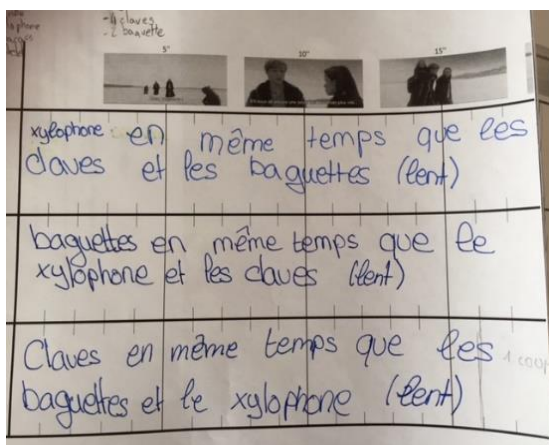 claves
baguette
5" 10" 15"
xylophone en même temps que les
claves et les baguettes (lent)
baguettes en même temps que le
xylophone et les claves (lent)
Claves en même temps que les
baguettes et le xylophone (lent)